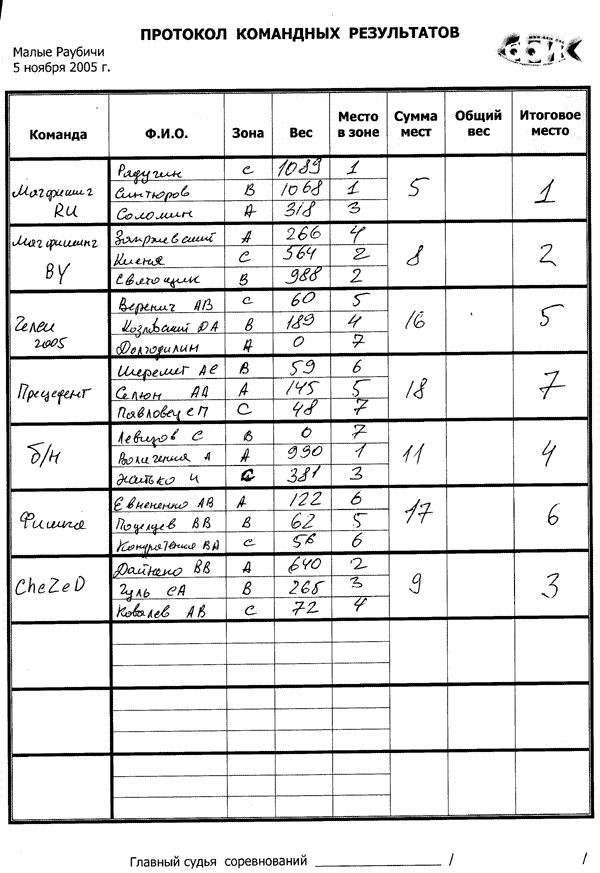 ПРОТОКОЛ КОМАНДНЫХ РЕЗУЛЬТАТОВ
Малые Раубичи
5 ноября 2005 г.
Команда Ф.И.О. Зона Вес Место в зоне Сумма мест Общий вес Итоговое место
Магфишинг RU Радугин С 1089 1 5 1
Синтюров В 1068 1
Соломин А 318 3
Магфишинг BY А 266 4 8 2
С 564 2
Святощик В 988 2
2005 Веренич АВ С 60 5 16 5
Козловский ДА В 189 4
А 0 7
Прецедент Шеремет АС В 59 6 18 7
Селюн АА А 145 5
Павловец СП С 48 7
б/н Левизов С В 0 7 11 4
А 990 1
Житько И С 381 3
Евнененко АВ А 122 6 17 6
Поцелуев ВВ В 62 5
Кондратения ВА С 56 6
CheZeD Дайнеко ВВ А 640 2 9 3
Гуль СА В 265 3
Ковалев АВ С 72 4
Главный судья соревнований / /